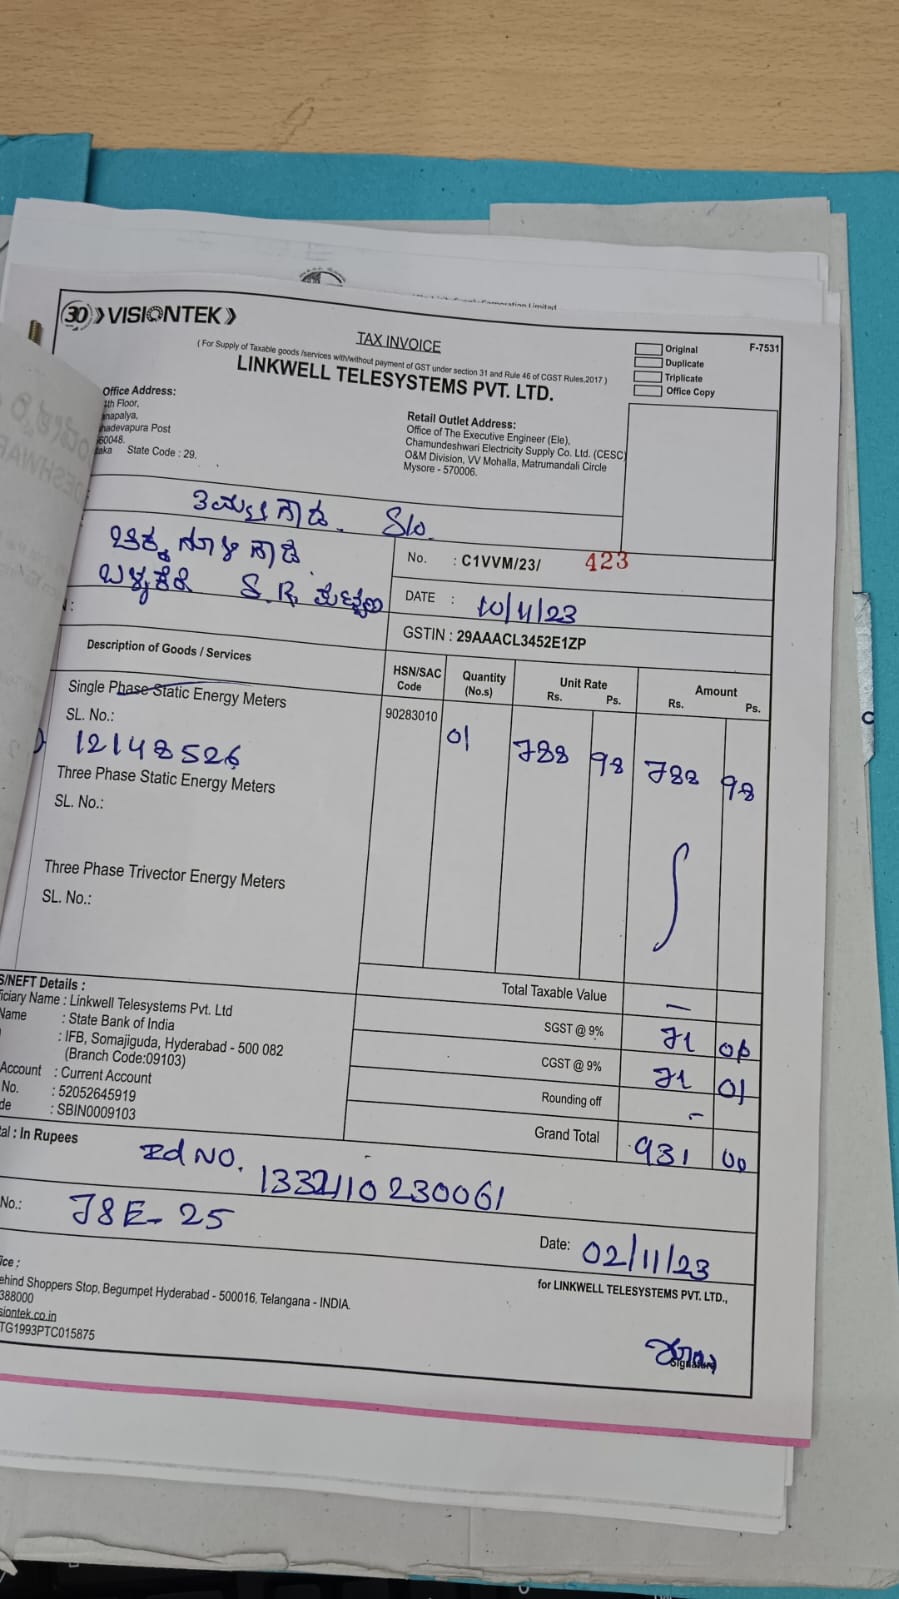 30 VISIONTEK
TAX INVOICE
( For Supply of Taxable goods /services with/without payment of GST under section 31 and Rule 46 of CGST Rules,2017 )
LINKWELL TELESYSTEMS PVT. LTD.
Original
Duplicate
Triplicate
Office Copy
F-7531
Office Address:
4th Floor,
State Code : 29.
Retail Outlet Address:
Office of The Executive Engineer (Ele),
Chamundeshwari Electricity Supply Co. Ltd. (CESC)
O&M Division, VV Mohalla, Matrumandali Circle
Mysore - 570006.
S/o.
No. : C1VVM/23/ 423
S.R.
DATE : 10/11/23
GSTIN : 29AAACL3452E1ZP
Description of Goods / Services
HSN/SAC Code
Quantity (No.s)
Unit Rate Rs. Ps.
Amount Rs. Ps.
Single Phase Static Energy Meters
90283010 01 788 98 788 98
SL. No.:
12148526
Three Phase Static Energy Meters
SL. No.:
Three Phase Trivector Energy Meters
SL. No.:
S/NEFT Details :
iciary Name : Linkwell Telesystems Pvt. Ltd
Name : State Bank of India
: IFB, Somajiguda, Hyderabad - 500 082
(Branch Code:09103)
Account : Current Account
No. : 52052645919
de : SBIN0009103
Total Taxable Value –
SGST @ 9% 71
CGST @ 9% 71 01
Rounding off -
Grand Total 931 00
tal : In Rupees
Rd NO. 
No.: J8E-25
Date: 02/11/23
for LINKWELL TELESYSTEMS PVT. LTD.,
ice :
ehind Shoppers Stop, Begumpet Hyderabad - 500016, Telangana - INDIA.
388000
siontek.co.in
TG1993PTC015875
Signature